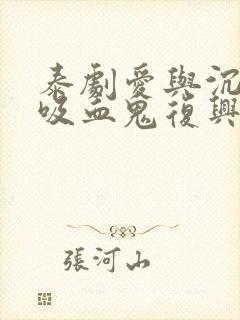 泰劇愛與沉
吸血鬼復興
張河山